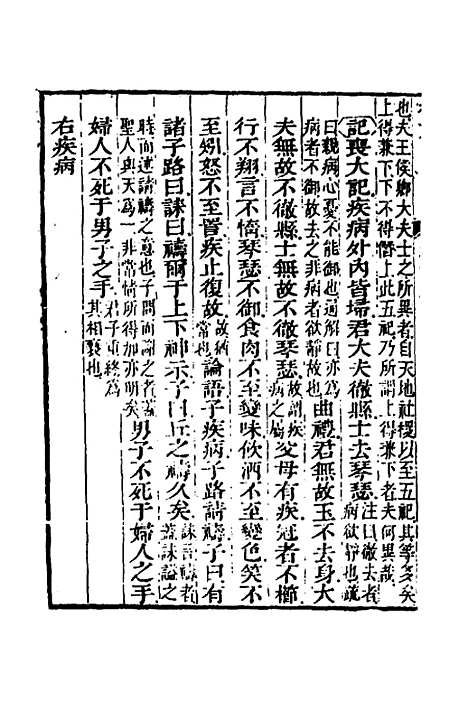 也夫王侯卿大夫士之所異者自天地社稷以至五祀其等多矣
上得兼下下不得僭上此五祀乃所謂上得兼下者夫何異哉
記喪大記疾病外內皆埽君大夫徹縣士去琴瑟
注曰徹去者
病欲靜也疏
曰親病心憂不能御也通解曰亦為
病者不御故去之非病者欲靜故也
曲禮君無故玉不去身大
夫無故不徹縣士無故不徹琴瑟
故謂疾
病之屬
父母有疾冠者不櫛
行不翔言不惰琴瑟不御食肉不至變味飲酒不至變色笑不
至矧怒不至詈疾止復故
故猶
常也
論語子疾病子路請禱子曰有
諸子路曰誄曰禱爾于上下神示子曰丘之禱久矣
誄謂禱者
蓋誄謚之
時而述請禱之意也子問而諭之者蓋
聖人與天為一非常情所得加亦明矣
男子不死于婦人之手
婦人不死于男子之手
君子重終為
其相褻也
右疾病